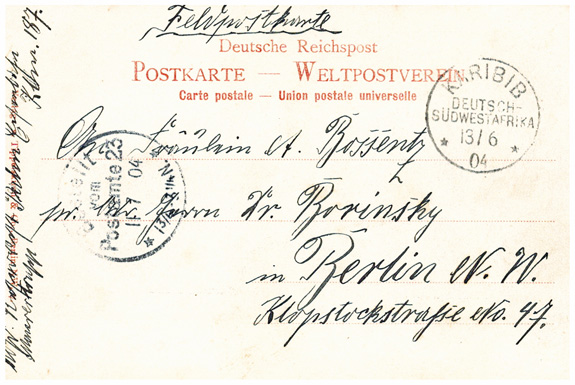 Feldpostkarte
Deutsche Reichspost
POSTKARTE — WELTPOSTVEREIN
Carte postale — Union postale universelle
KARIBIB
DEUTSCH-
SÜDWESTAFRIKA
13/6
04
An Fräulein A. Bossentz
Bestellt
vom
Postamte 23
11.7 04
pr. Adr. Herrn Dr. Borinsky
in Berlin N. W.
Klopstockstraße No. 47.